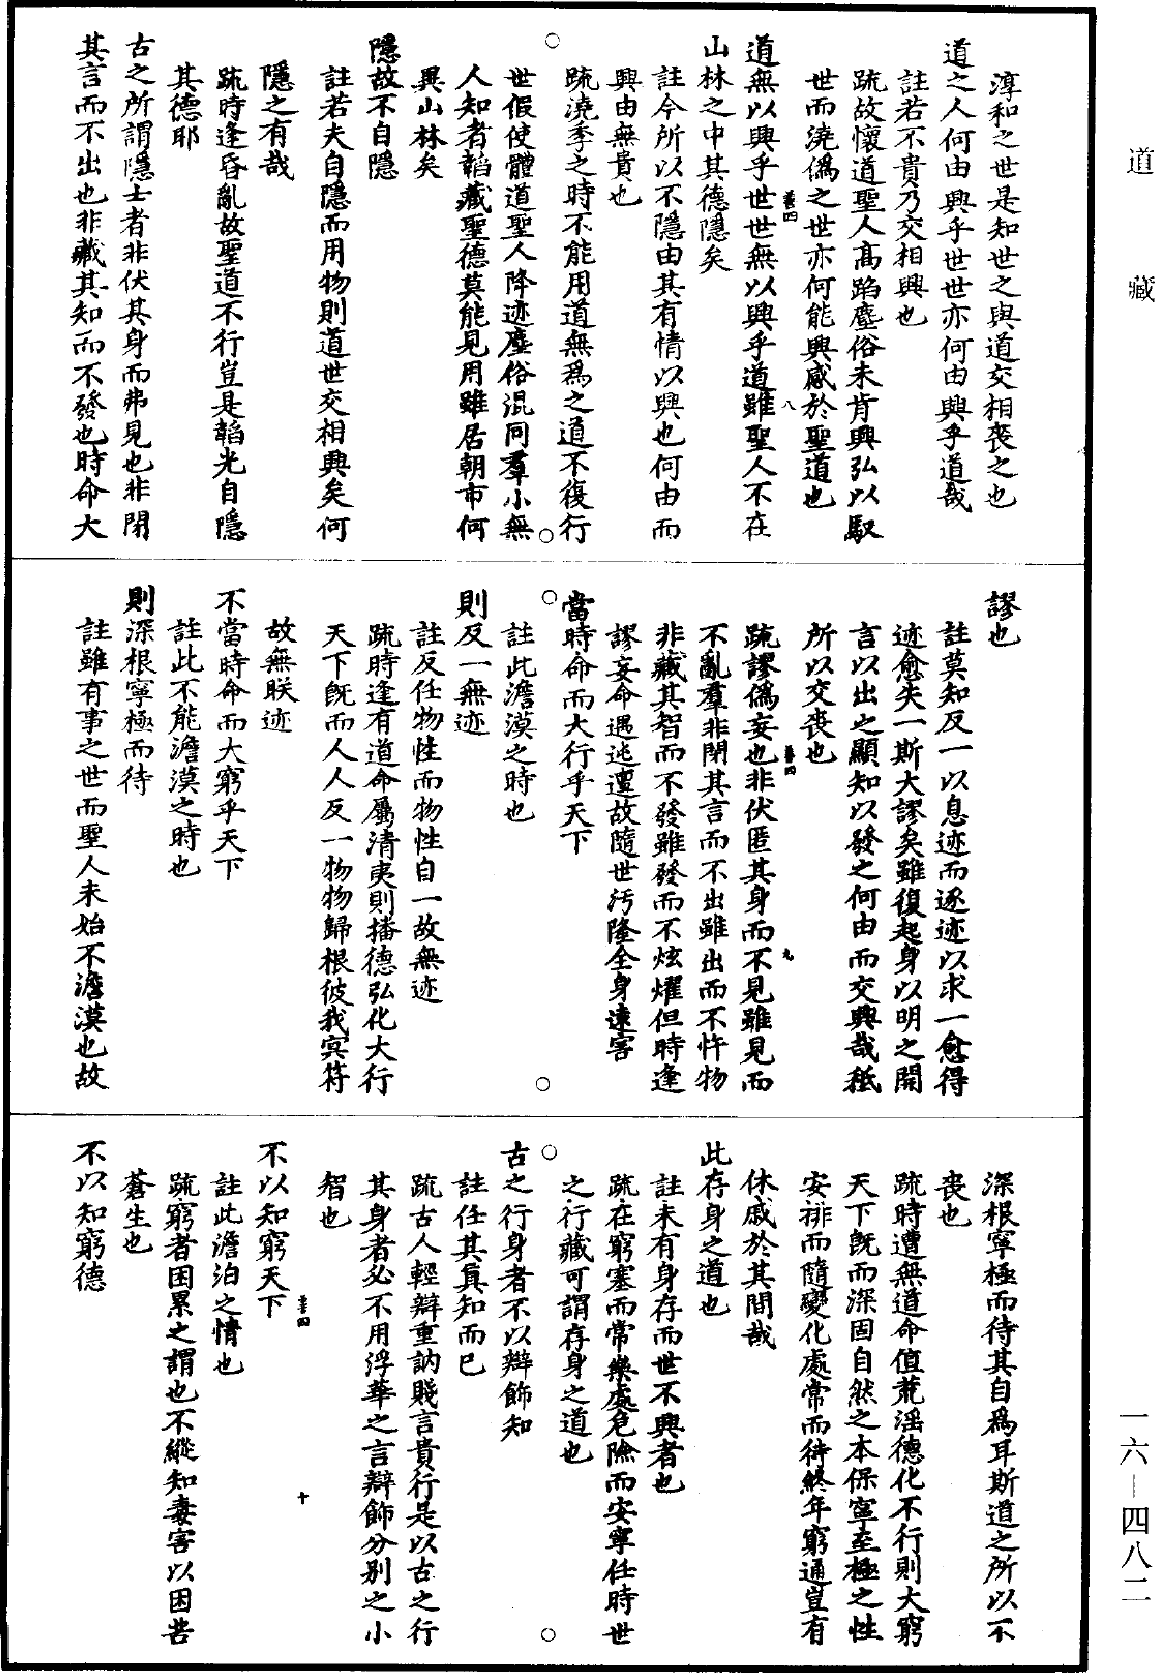 道藏
淳和之世是知世之與道交相喪之也
道之人何由興乎世世亦何由興乎道哉
註若不貴乃交相興也
疏故懷道聖人高蹈塵俗未肯興弘以馭
世而澆僞之世亦何能興感於聖道也
道無以興乎世世無以興乎道雖聖人不在
山林之中其德隱矣
註今所以不隱由其有情以興也何由而
興由無貴也
疏澆季之時不能用道無爲之道不復行
世假使體道聖人降迹塵俗混同羣小無
人知者韜藏聖德莫能見用雖居朝市何
異山林矣
隱故不自隱
註若夫自隱而用物則道世交相興矣何
隱之有哉
疏時逢昏亂故聖道不行豈是韜光自隱
其德耶
古之所謂隱士者非伏其身而弗見也非閉
其言而不出也非藏其知而不發也時命大
謬也
註莫知反一以息迹而逐迹以求一愈得
迹愈失一斯大謬矣雖復起身以明之開
言以出之顯知以發之何由而交興哉秪
所以交喪也
疏謬僞妄也非伏匿其身而不見雖見而
不亂羣非閉其言而不出雖出而不忤物
非藏其智而不發雖發而不炫燿但時逢
謬妄命遇迍邅故隨世污隆全身遠害
當時命而大行乎天下
註此澹漠之時也
則反一無迹
註反任物性而物性自一故無迹
疏時逢有道命屬清夷則播德弘化大行
天下旣而人人反一物物歸根彼我冥符
故無朕迹
不當時命而大窮乎天下
註此不能澹漠之時也
則深根寧極而待
註雖有事之世而聖人未始不澹漠也故
深根寧極而待其自爲耳斯道之所以不
喪也
疏時遭無道命值荒淫德化不行則大窮
天下旣而深固自然之本保寧至極之性
安排而隨變化處常而待終年窮通豈有
休戚於其間哉
此存身之道也
註未有身存而世不興者也
疏在窮塞而常樂處危險而安寧任時世
之行藏可謂存身之道也
古之行身者不以辯飾知
註任其真知而已
疏古人輕辯重訥賤言貴行是以古之行
其身者必不用浮華之言辯飾分別之小
智也
不以知窮天下
註此澹泊之情也
疏窮者困累之謂也不縱知毒害以困苦
蒼生也
不以知窮德
一六—四八二